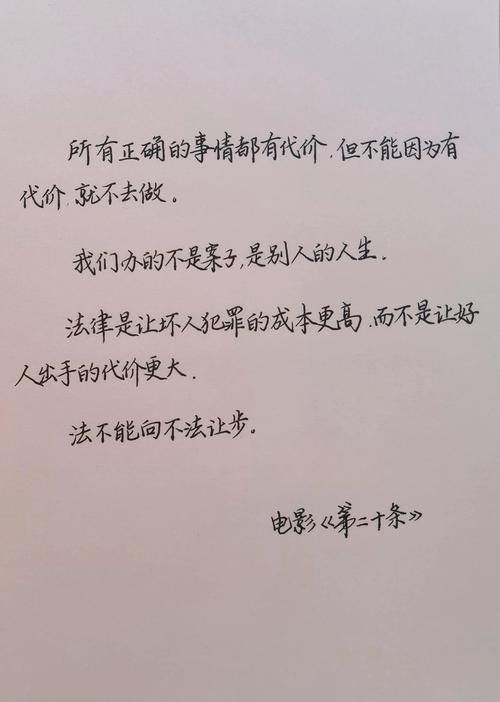 所有正确的事情都有代价,但不能因为有
代价,就不去做。
我们办的不是案子,是别人的人生.
法律是让坏人犯罪的成本更高,而不是让好
人出手的代价更大.
法不能向不法让步。
电影《第二十条》